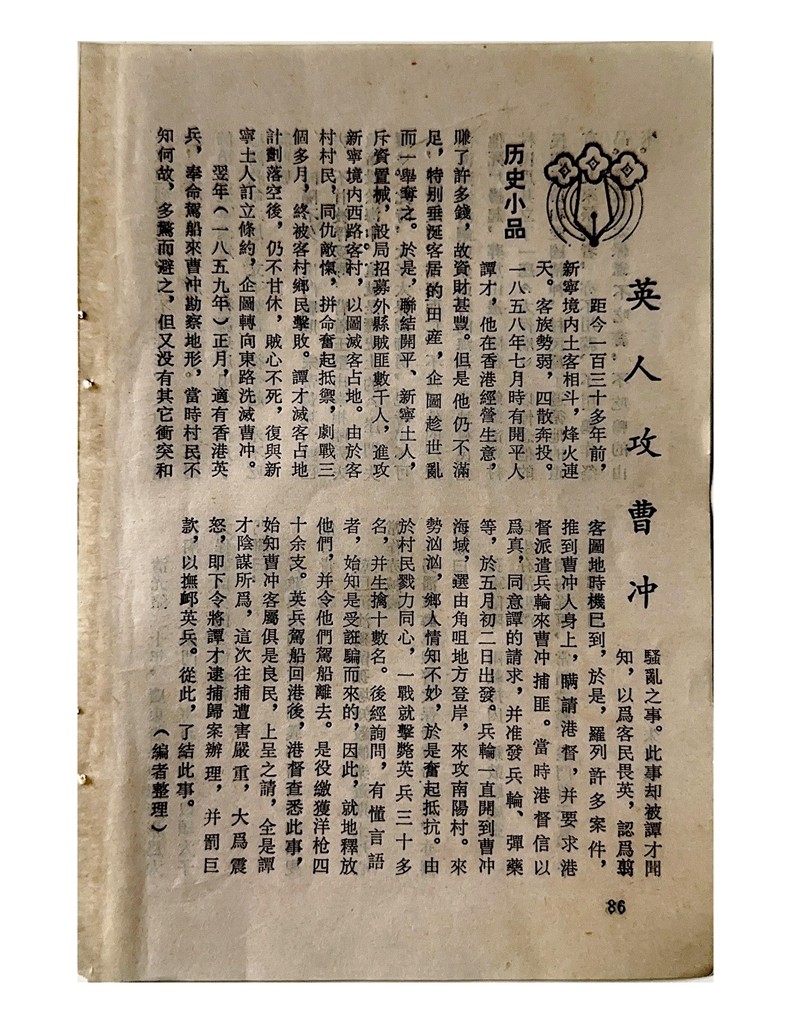 历史小品
英人攻曹冲
距今一百三十多年前，
新寧境内土客相斗，烽火連
天。客族勢弱，四散奔投。
一八五八年七月時有開平人
譚才，他在香港經營生意，
賺了許多錢，故資財甚豐。但是他仍不滿
足，特别垂涎客居的田産，企圖趁世亂
而一舉奪之。於是，聯結開平、新寧土人，
斥資置械，設局招募外縣賊匪數千人，進攻
新寧境内西路客村，以圖滅客占地。由於客
村村民，同仇敵愾，拼命奮起抵禦，劇戰三
個多月，終被客村鄉民擊敗。譚才滅客占地
計劃落空後，仍不甘休，賊心不死，復與新
寧土人訂立條約，企圖轉向東路洗滅曹冲。
翌年（一八五九年）正月，適有香港英
兵，奉命駕船來曹冲勘察地形，當時村民不
知何故，多驚而避之，但又没有其它衝突和
騷亂之事。此事却被譚才聞
知，以爲客民畏英，認爲翦
客圖地時機已到，於是，羅列許多案件，
推到曹冲人身上，瞞請港督，并要求港
督派遣兵輪來曹冲捕匪。當時港督信以
爲真，同意譚的請求，并准發兵輪、彈藥
等，於五月初二日出發。兵輪一直開到曹冲
海域，選由角咀地方登岸，來攻南陽村。來
勢汹汹，鄉人情知不妙，於是奮起抵抗。由
於村民戮力同心，一戰就擊斃英兵三十多
名，并生擒十數名。後經詢問，有懂言語
者，始知是受誑騙而來的，因此，就地釋放
他們，并令他們駕船離去。是役繳獲洋槍四
十余支。英兵駕船回港後，港督查悉此事，
始知曹冲客屬俱是良民，上呈之請，全是譚
才陰謀所爲，這次往捕遭害嚴重，大爲震
怒，即下令將譚才逮捕歸案辦理，并罰巨
款，以撫邮英兵。從此，了結此事。
（編者整理）
86